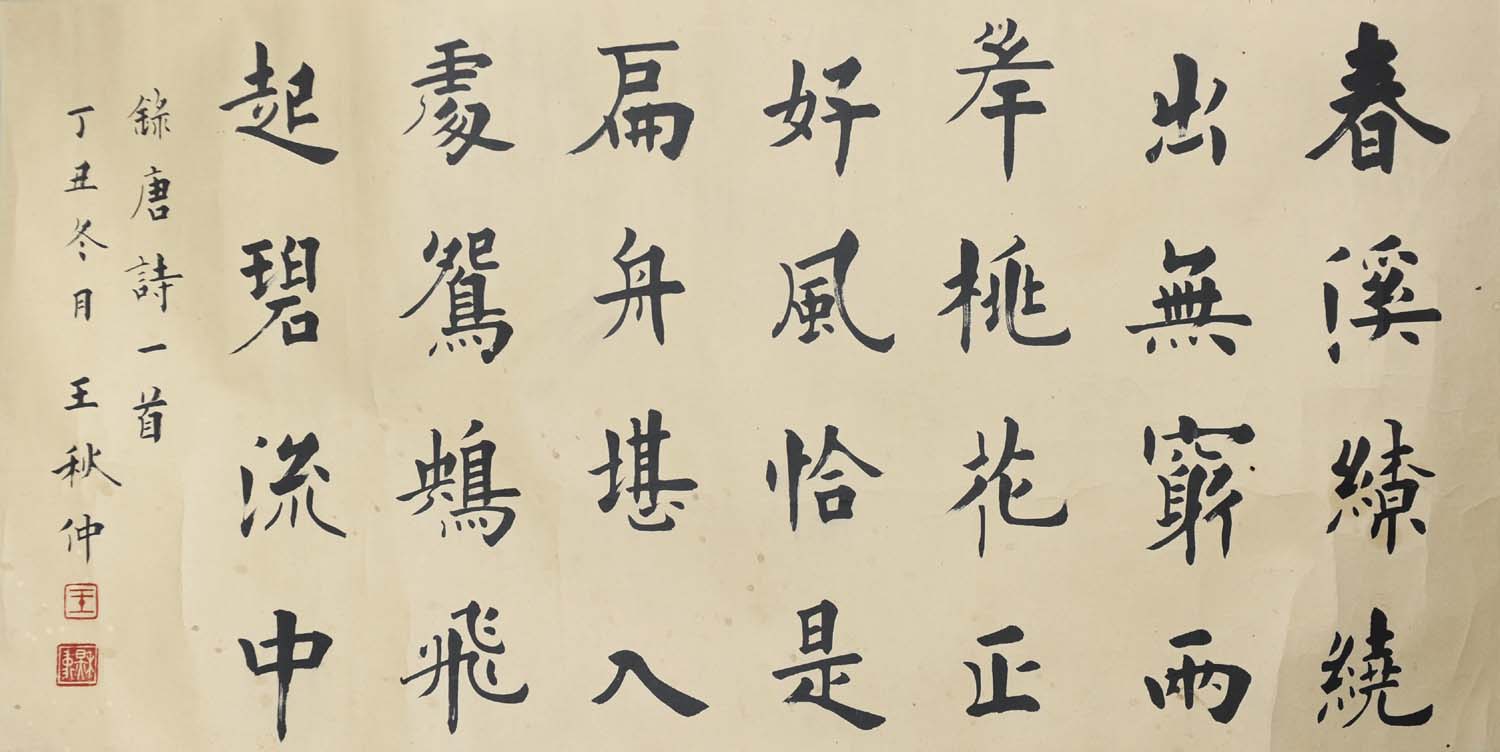 春溪繚繞
出無窮兩
岸桃花正
好風恰是
扁舟堪入
處鴛鴦飛
起碧流中
錄唐詩一首
丁丑冬月王秋仲
王